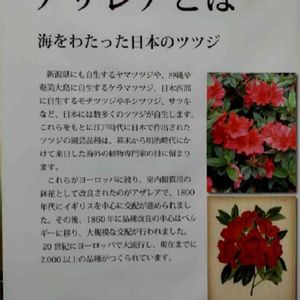 アザレアとは
海をわたった日本のツツジ
新潟県にも自生するヤマツツジや、沖縄や
奄美大島に自生するケラマツツジ、日本西部
に自生するモチツツジやキシツツジ、サツキ
など、日本には数多くのツツジが自生します。
これらをもとに江戸時代に日本で作出された
ツツジの園芸品種は、幕末から明治時代にか
けて来日した海外の植物専門家の目に留まり
ます。
これらがヨーロッパに渡り、室内観賞用の
鉢花として改良されたのがアザレアで、1800
年代にイギリスを中心に交配が進められまし
た。その後、1860年に品種改良の中心はベル
ギーに移り、大規模な交配が行われました。
20世紀にヨーロッパで大流行し、現在までに
2,000以上の品種がつくられています。